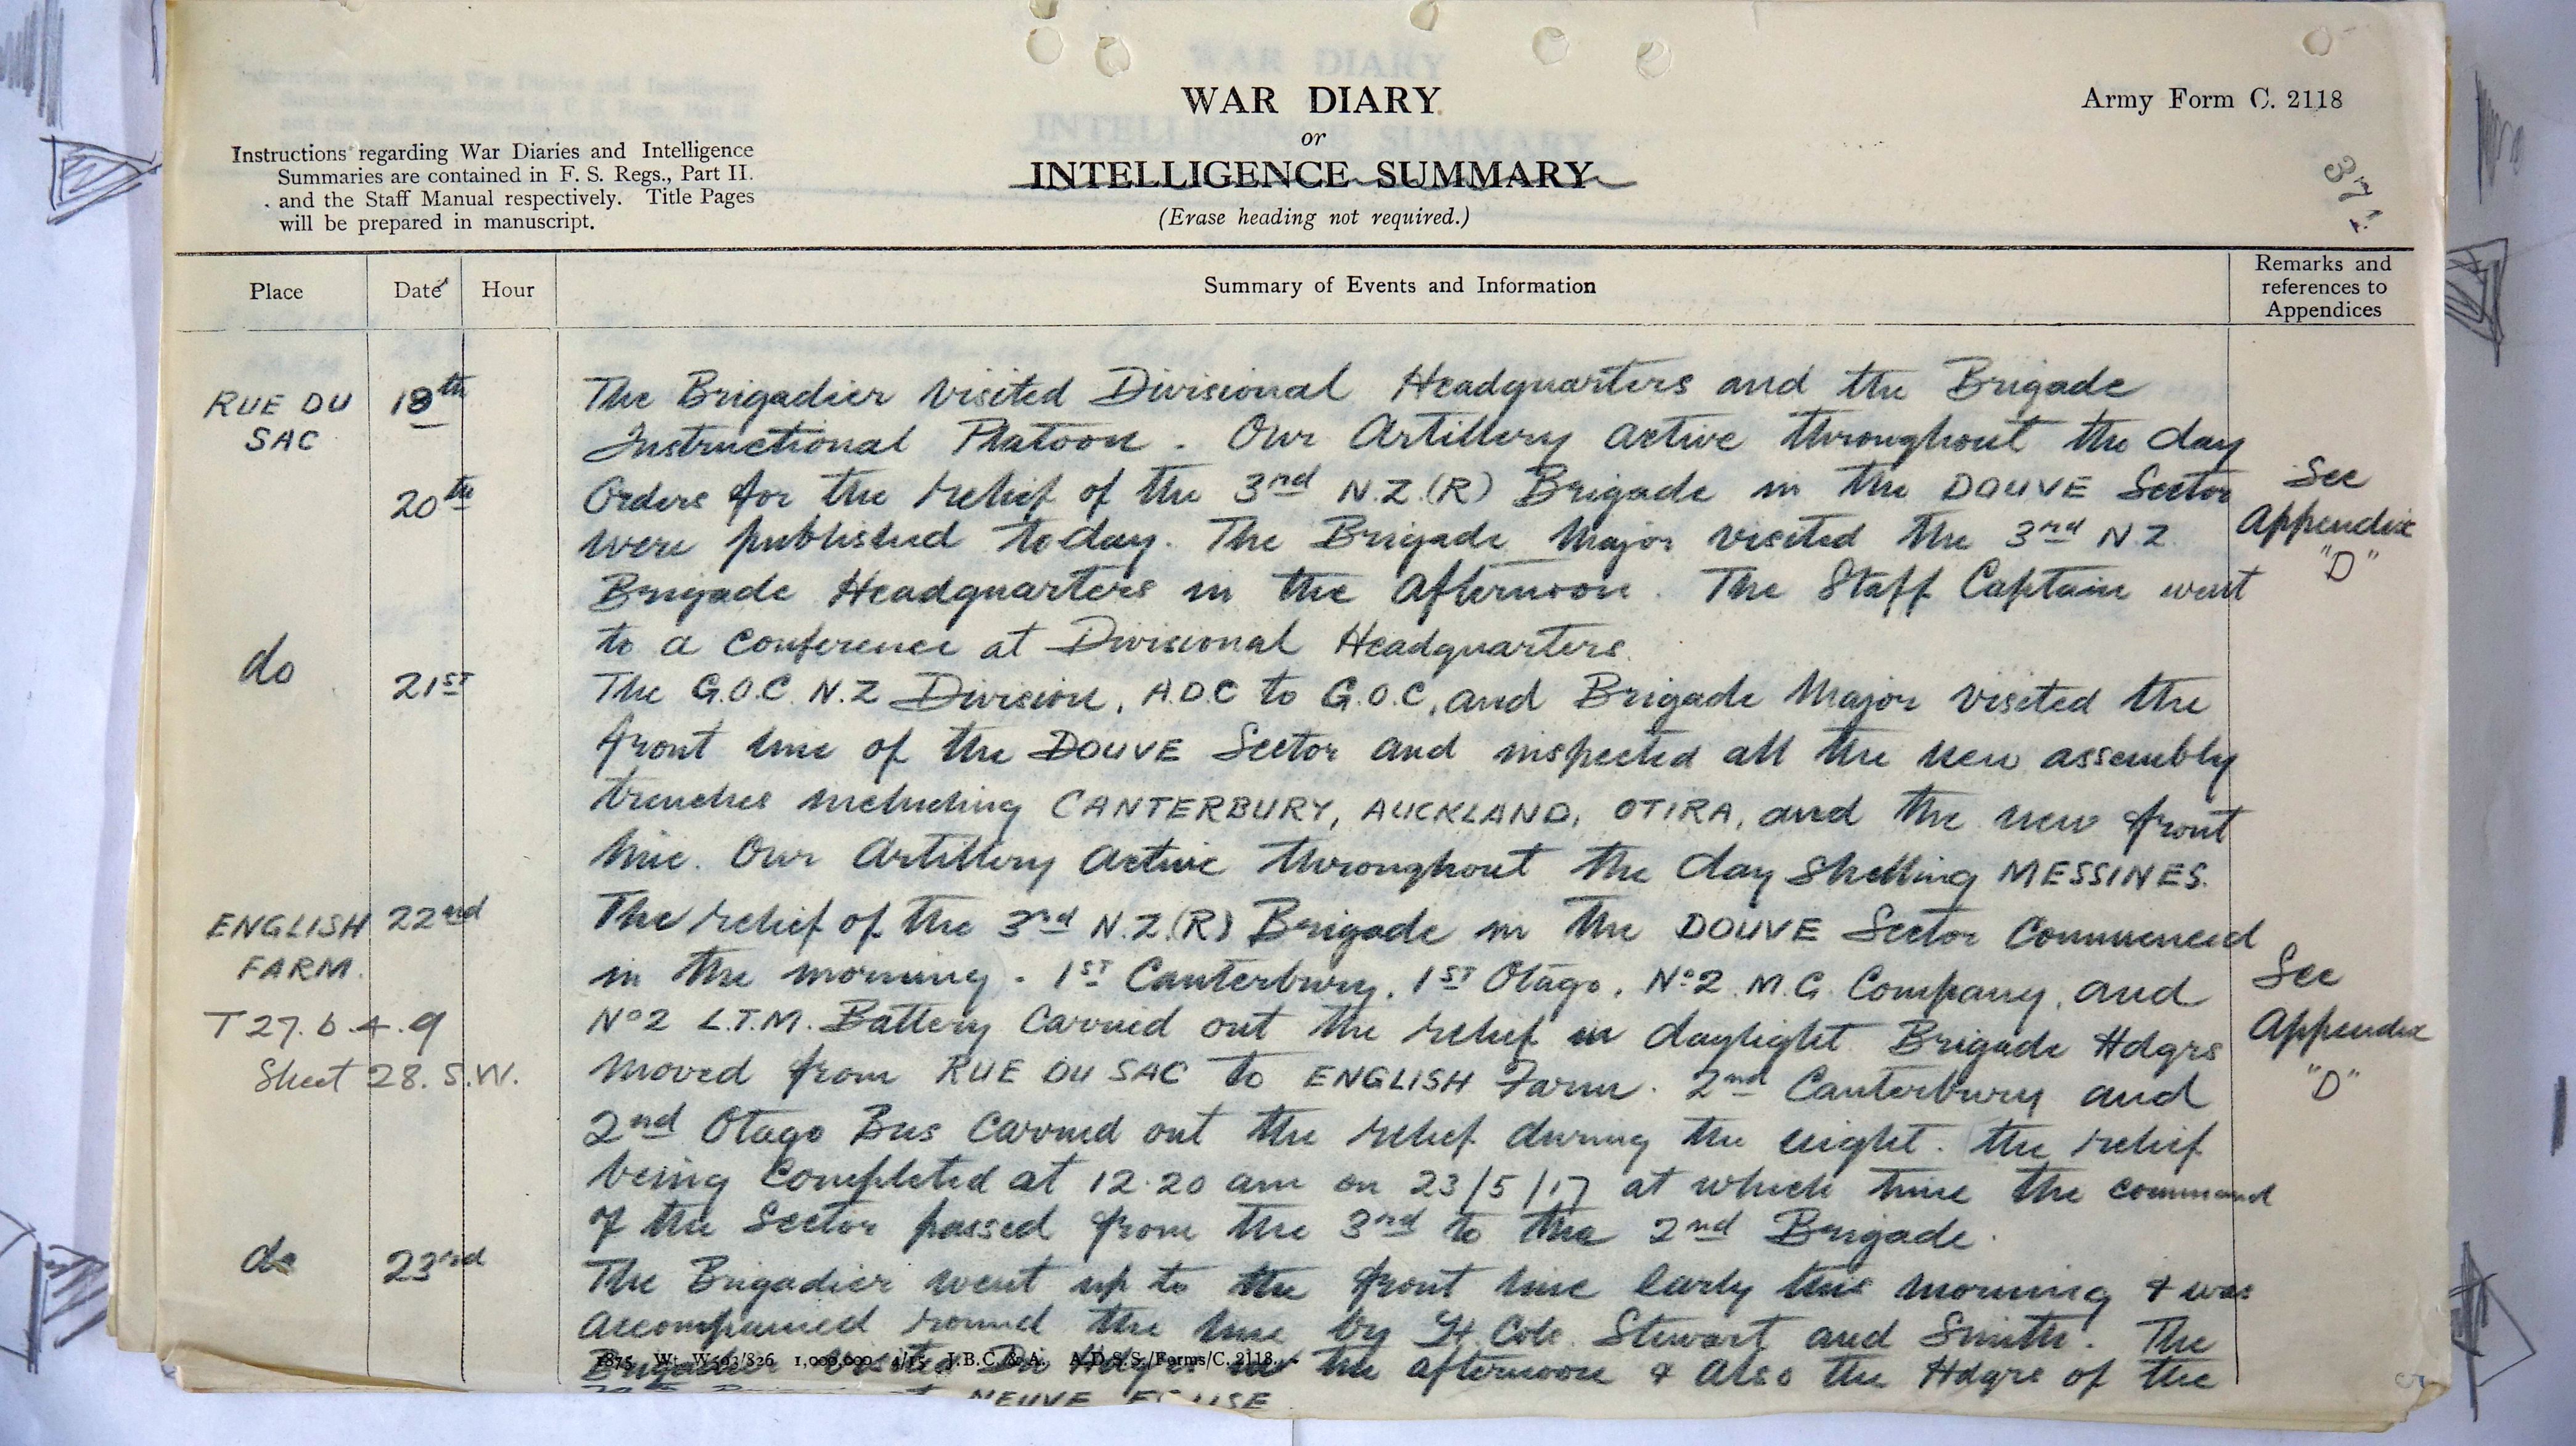 WAR DIARY
or
INTELLIGENCE SUMMARY
(Erase heading not required.)
Army Form C. 2118
Instructions regarding War Diaries and Intelligence
Summaries are contained in F. S. Regs., Part II.
and the Staff Manual respectively. Title Pages
will be prepared in manuscript.
Place Date Hour Summary of Events and Information Remarks and references to Appendices
RUE DU 18th The Brigadier visited Divisional Headquarters and the Brigade
SAC Instructional Platoon. Our Artillery active throughout the day
20th Orders for the relief of the 3rd N.Z.(R) Brigade in the DOUVE Sector See
were published today. The Brigade Major visited the 3rd N.Z. Appendix
Brigade Headquarters in the afternoon. The Staff Captain went "D"
to a conference at Divisional Headquarters.
do 21ST The G.O.C. N.Z Division, A.D.C to G.O.C, and Brigade Major visited the
front line of the DOUVE Sector and inspected all the new assembly
trenches including CANTERBURY, AUCKLAND, OTIRA, and the new front
line. Our Artillery active throughout the day shelling MESSINES.
ENGLISH 22nd The relief of the 3rd N.Z.(R) Brigade in the DOUVE Sector commenced
FARM. in the morning. 1ST Canterbury, 1ST Otago, No 2 M.G. Company, and See
T 27.b.4.9 No 2 L.T.M. Battery carried out the relief in daylight Brigade Hdqrs Appendix
Sheet 28. S.W. moved from RUE DU SAC to ENGLISH Farm. 2nd Canterbury and "D"
2nd Otago Bns carried out the relief during the night. the relief
being completed at 12.20 am on 23/5/17 at which time the command
of the Sector passed from the 3rd to the 2nd Brigade.
do 23rd The Brigadier went up to the front line early this morning & was
accompanied round the line by Lt. Cols. Stewart and Smith. The
Brigadier visited Div Hdqrs in the afternoon & also the Hdqrs of the
1875 Wt. W593/826 1,000,000 4/15 J.B.C. & A. A.D.S.S./Forms/C. 2118.
NEUVE EGLISE